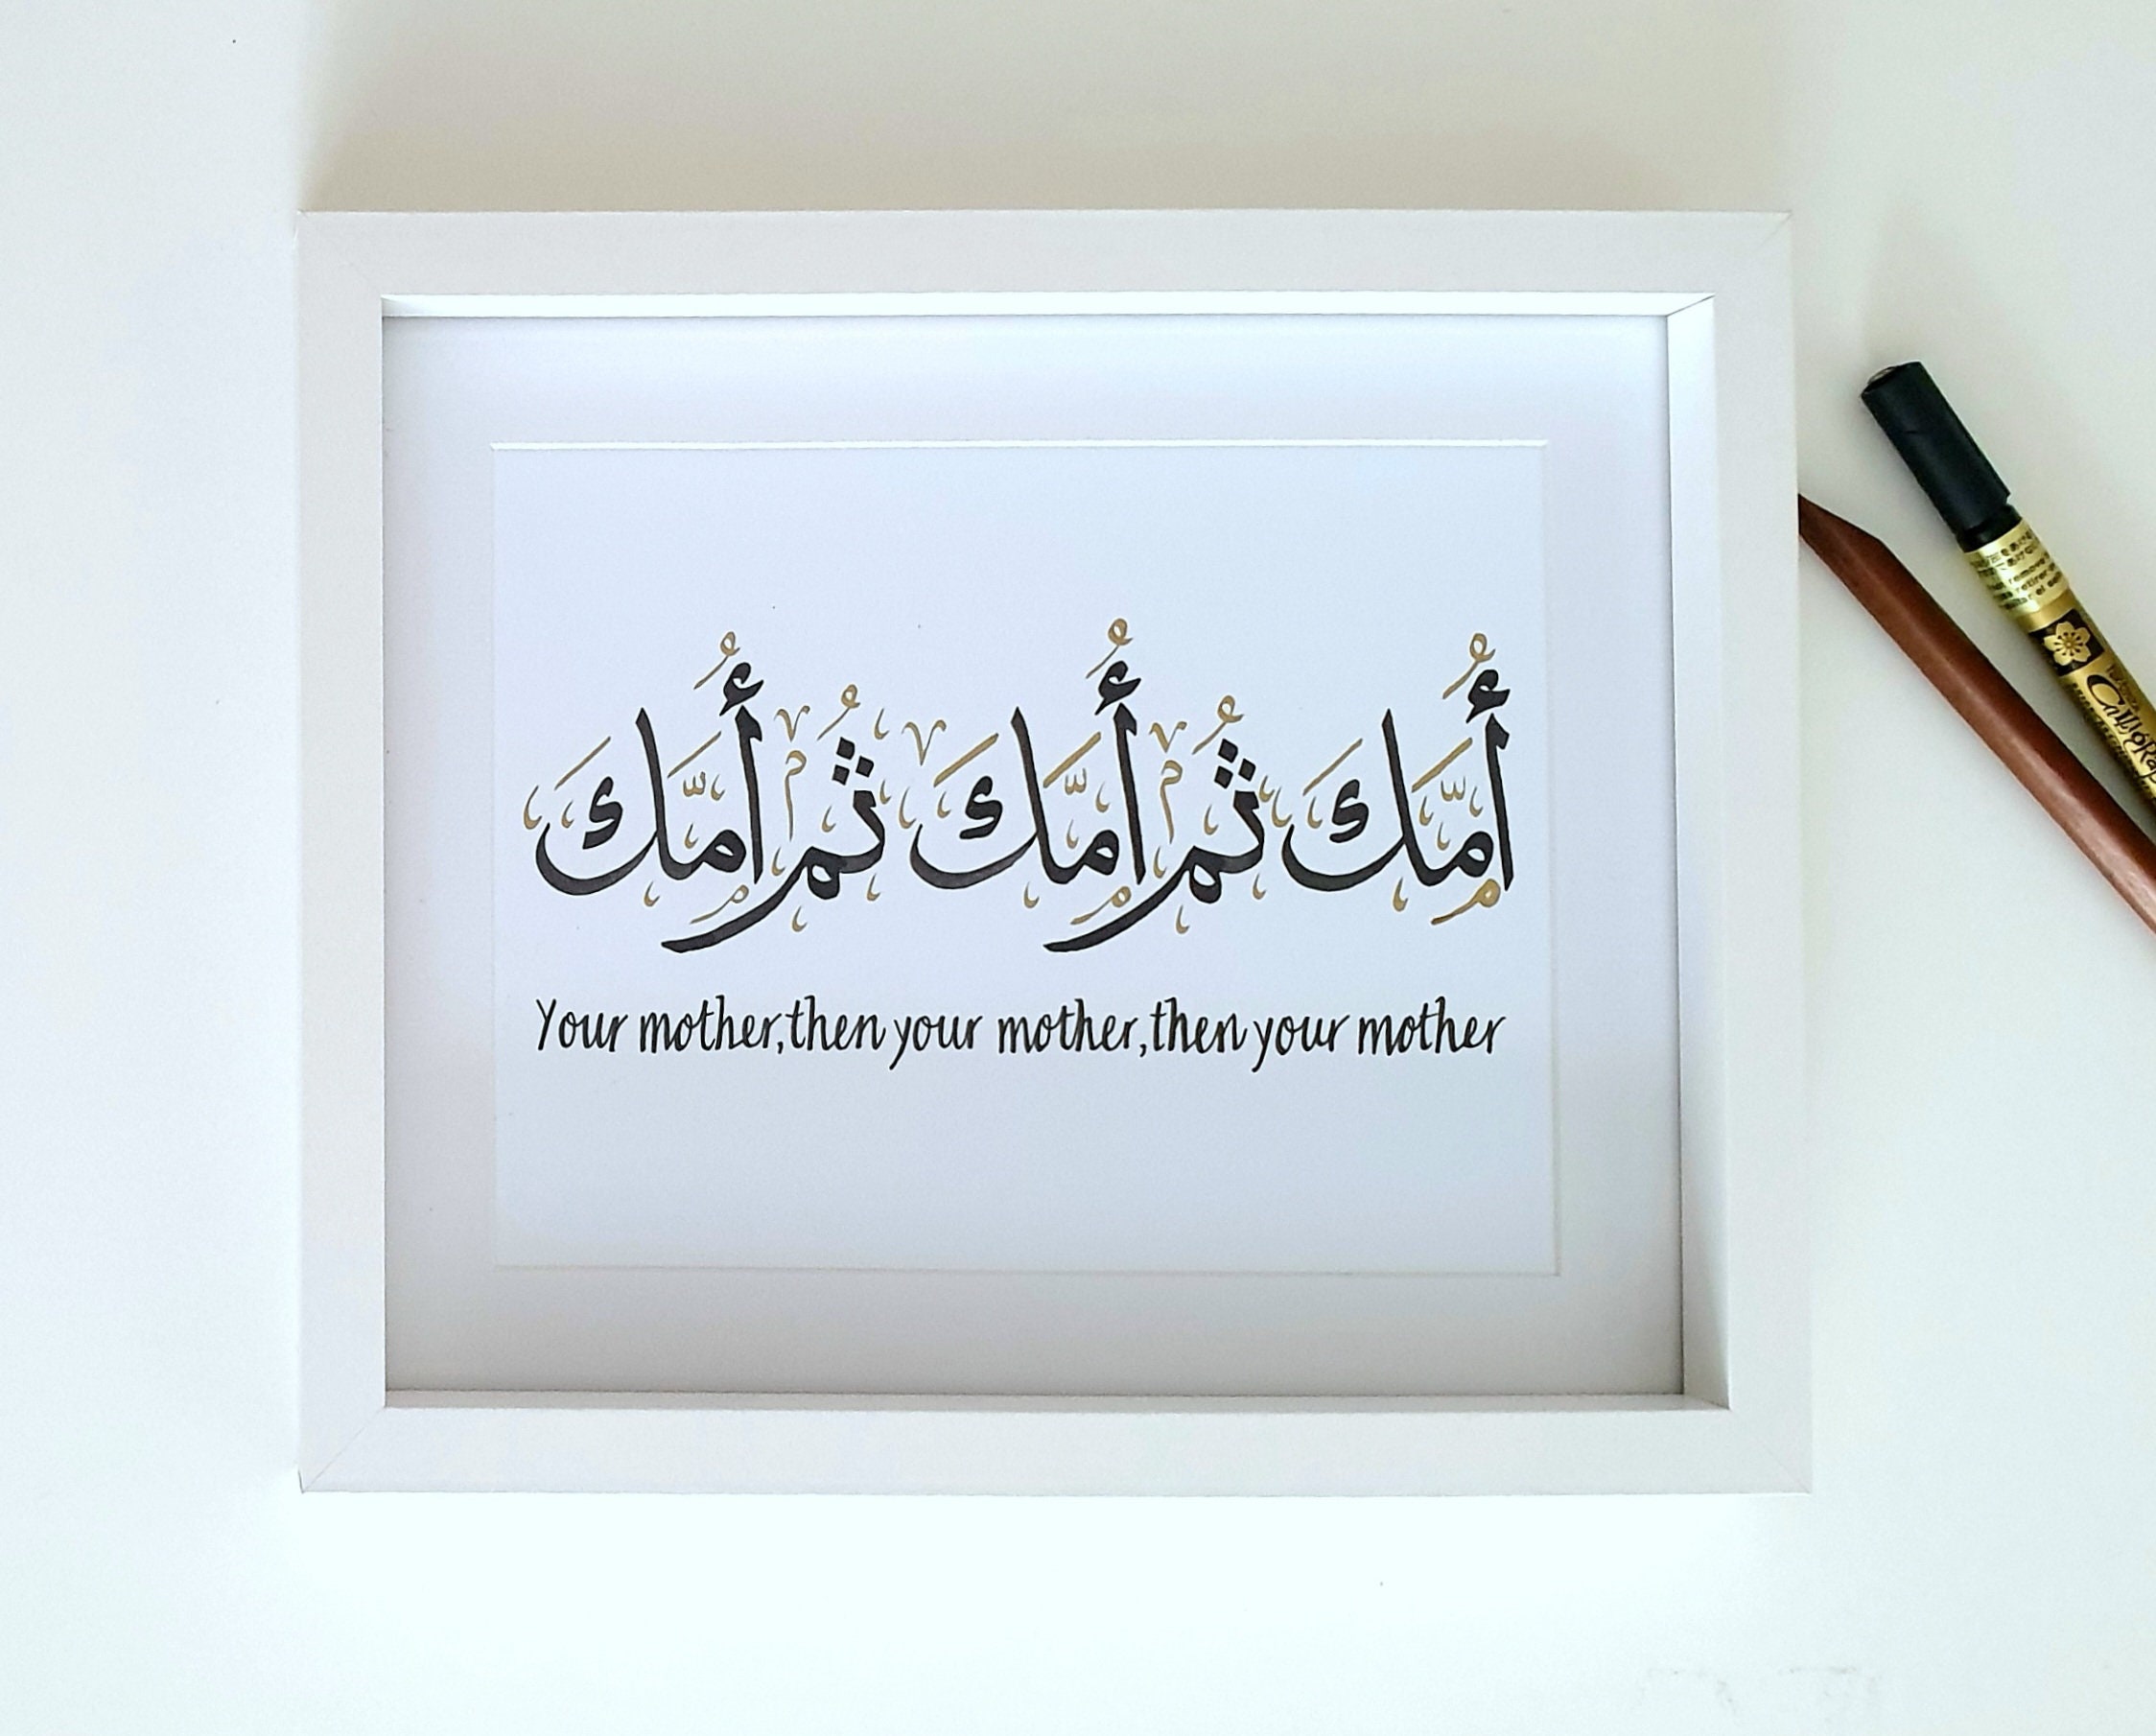 أُمَّكَ ثُمَّ أُمَّكَ ثُمَّ أُمَّكَ
Your mother, then your mother, then your mother